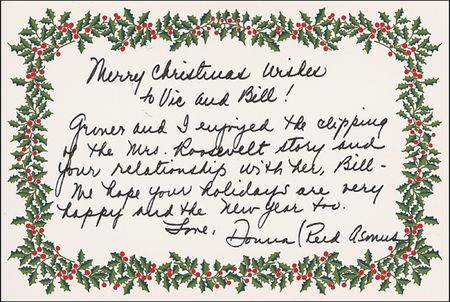 Merry Christmas Wishes
to Vic and Bill!
Grover and I enjoyed the clipping
of the Mrs. Roosevelt story and
your relationship with her, Bill -
We hope your holidays are very
happy and the New Year too.
Love, Donna (Reed Asmus